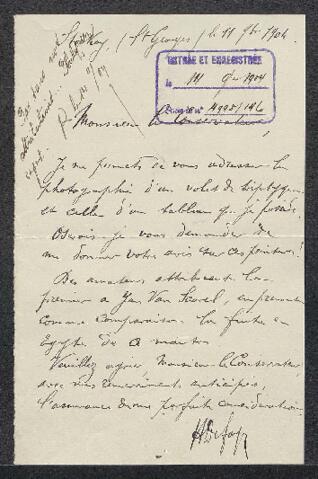 (St Georges) le 11 9bre 1904
ENTRÉE ET ENREGISTRÉE
le 11 9bre 1904
Monsieur le Conservateur,
Je me permets de vous adresser la
photographie d'un volet de triptyque
et celle d'un tableau que je possède.
Oserais-je vous demander de
me donner votre avis sur ces peintures?
Des amateurs attribuent le
premier à Jan Van Scorel, en prenant
comme comparaison La fuite en
Egypte de ce maître.
Veuillez agréer, Monsieur le Conservateur,
avec mes remerciements anticipés,
l'assurance de ma parfaite considération